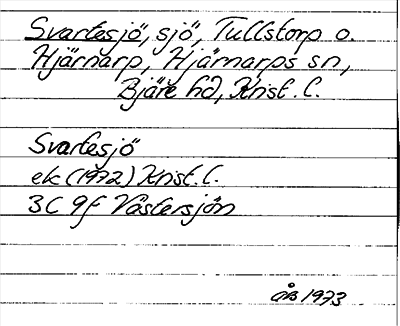 Svartesjö, sjö, Tullstorp o.
Hjärnarp, Hjärnarps sn,
Bjäre hd, Krist. l.
Svartesjö
ek (1972) Krist. l.
3C 9f Västersjön
åB 1973